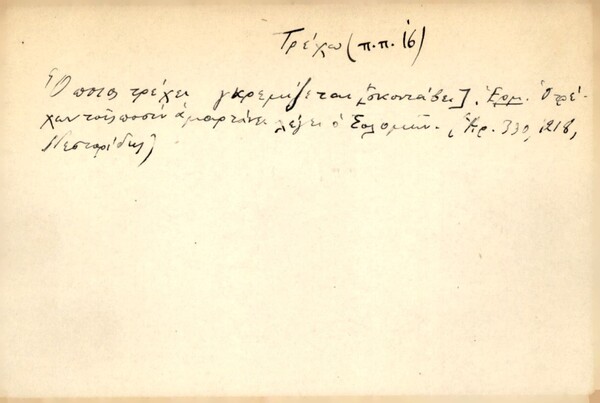 Τρέχω (π.π. 16)
Ὅποιος τρέχει γκρεμίζεται [σκοντάβει]. Ἑρμ. Ὁ τρέ-
χων τοῖς ποσὶν ἁμαρτάνει λέγει ὁ Σολομῶν. (Χρ. 330, 1218,
Νεστορίδης)